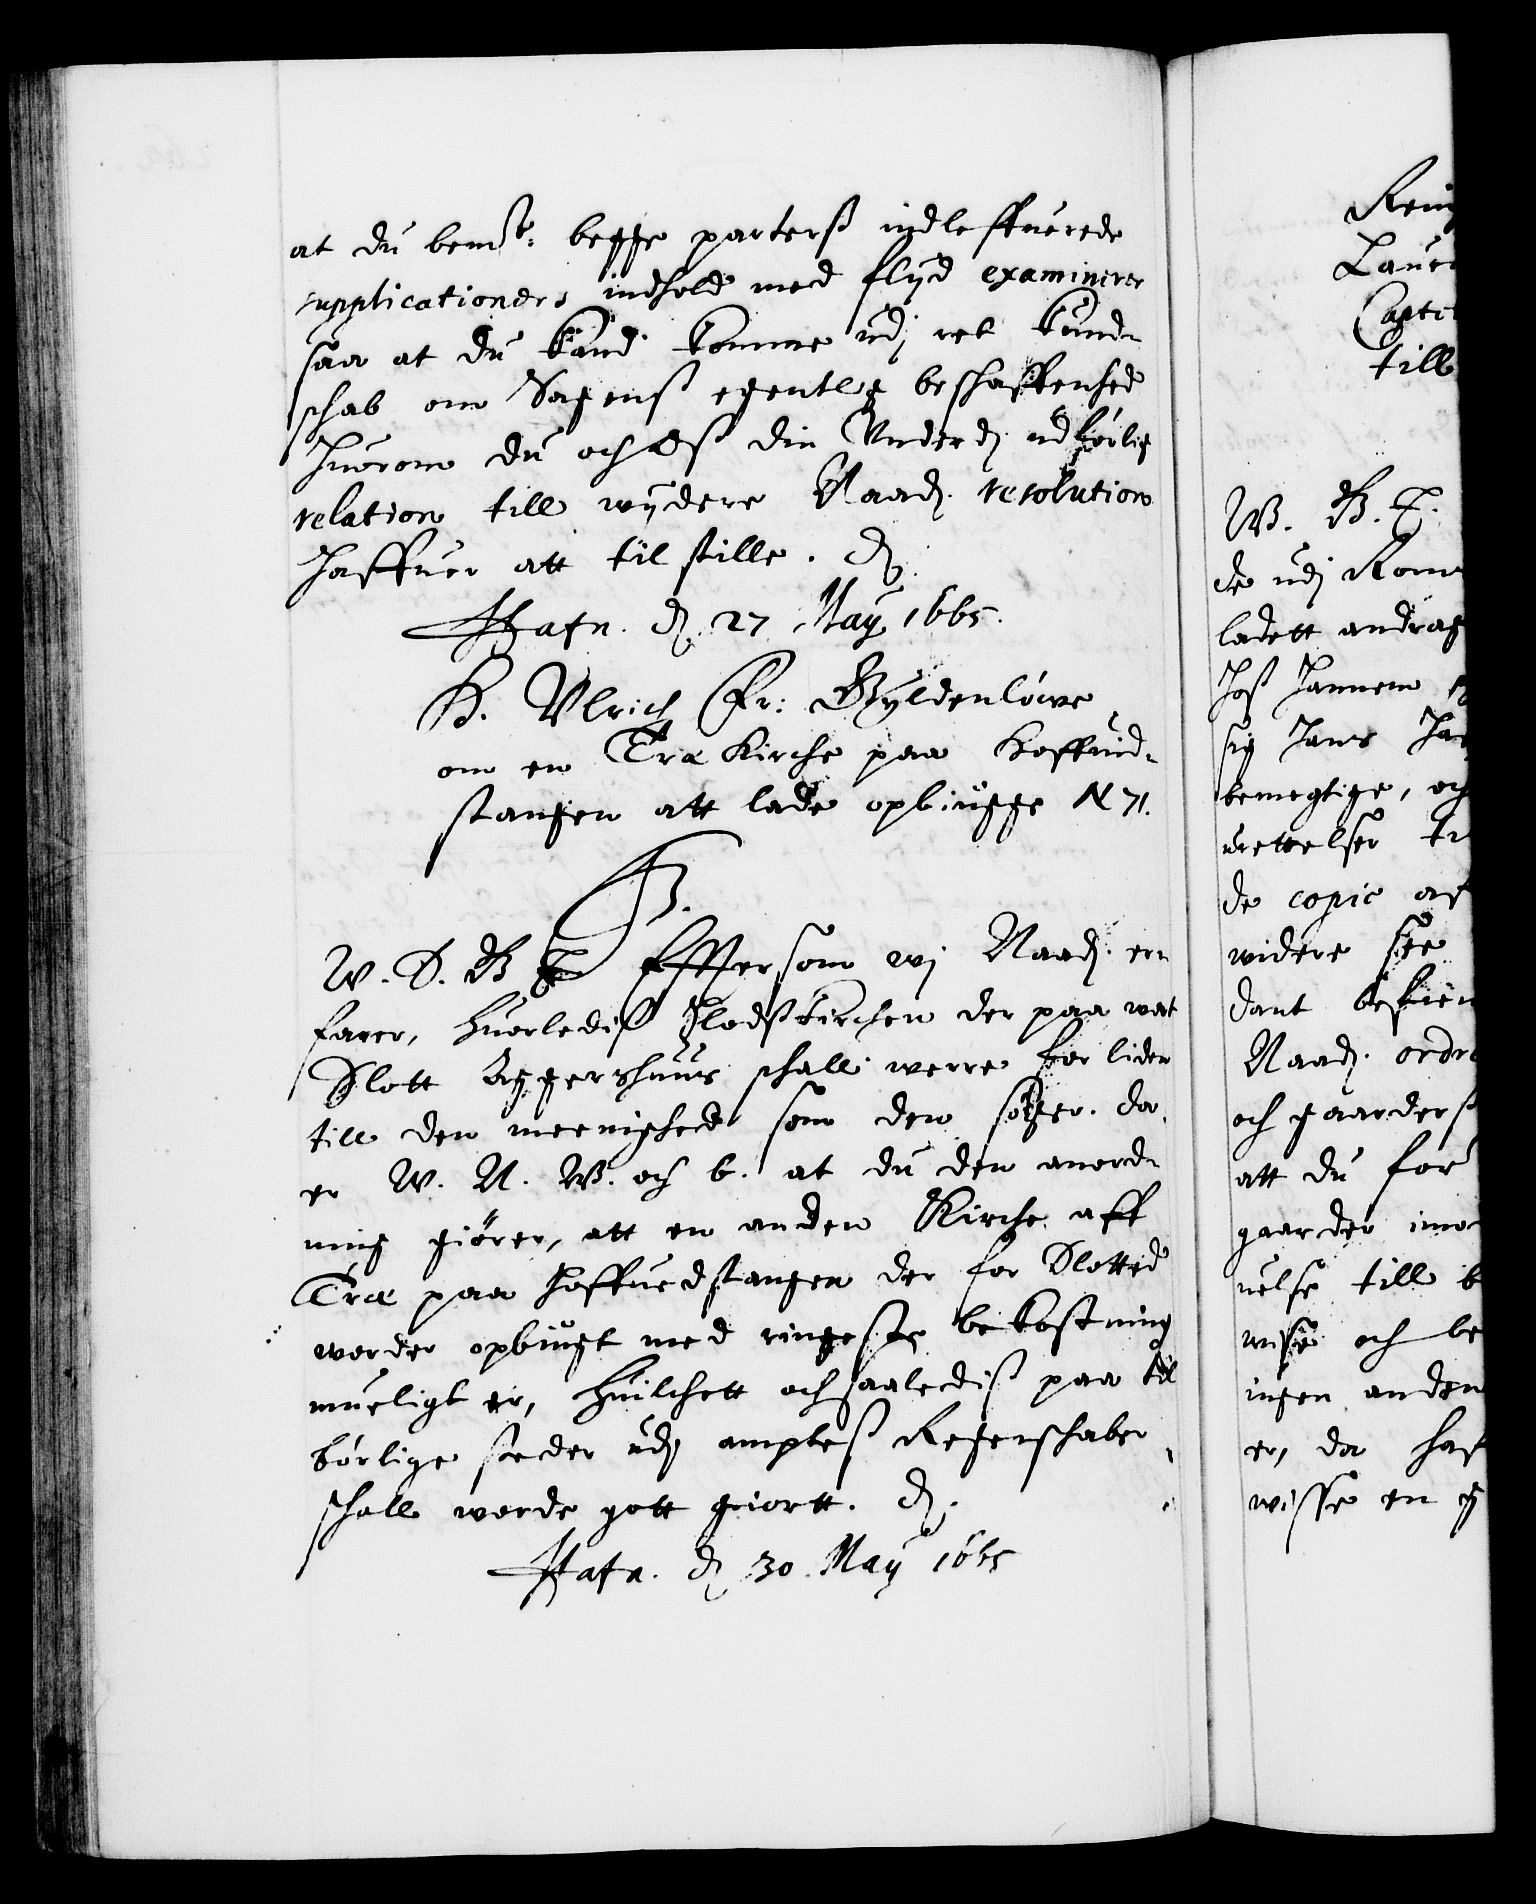 at du bemte: begge parterß indleffuerede
supplicationers indhold med flijd examinerer
saa at du kand komme udj ret kund-
schab om Sagenß egentlig beschaffenhed
Huorom du och oß din Underd: udförlig
relation till wijdere Naad: resolution
haffuer att tilstille. D:
Hafn. d: 27 May 1665.
H. Ulrich Fr: Gyldenlöwe
om en Træ Kirche paa Hoffuid-
stangen att lade opbiugge N 71.
F 3.
W. S. G T Effter som wi Naad: er-
farer, huorledis Slodtzkirchen der paa wort
Slott Aggershuus schall werre for liden
till den meenighed som den söger. da
er W. N. W. och b. at du den anord-
ning giörer, att en anden Kirche aff
Træ paa Hoffuedstangen der for Slottid
worder opbiugt med ringeste bekostning
mueligt er, Huilchett och saalediß paa til
börlige steder udj amptß Regenschaber
schall worde gott giortt. D:
Hafn. d: 30 May 1665
Laur
Capt
till
W. G. T.
de udj Rom
ladett andrag
hoß hannem
sig hans
bemegtige, och
urettelser
de copie aff
widere see
dant
Naad: ordr
och gaarderß
att du for
gaarder imo
uelse till b
wise och be
ingen anden
er, da haf
wisse en g